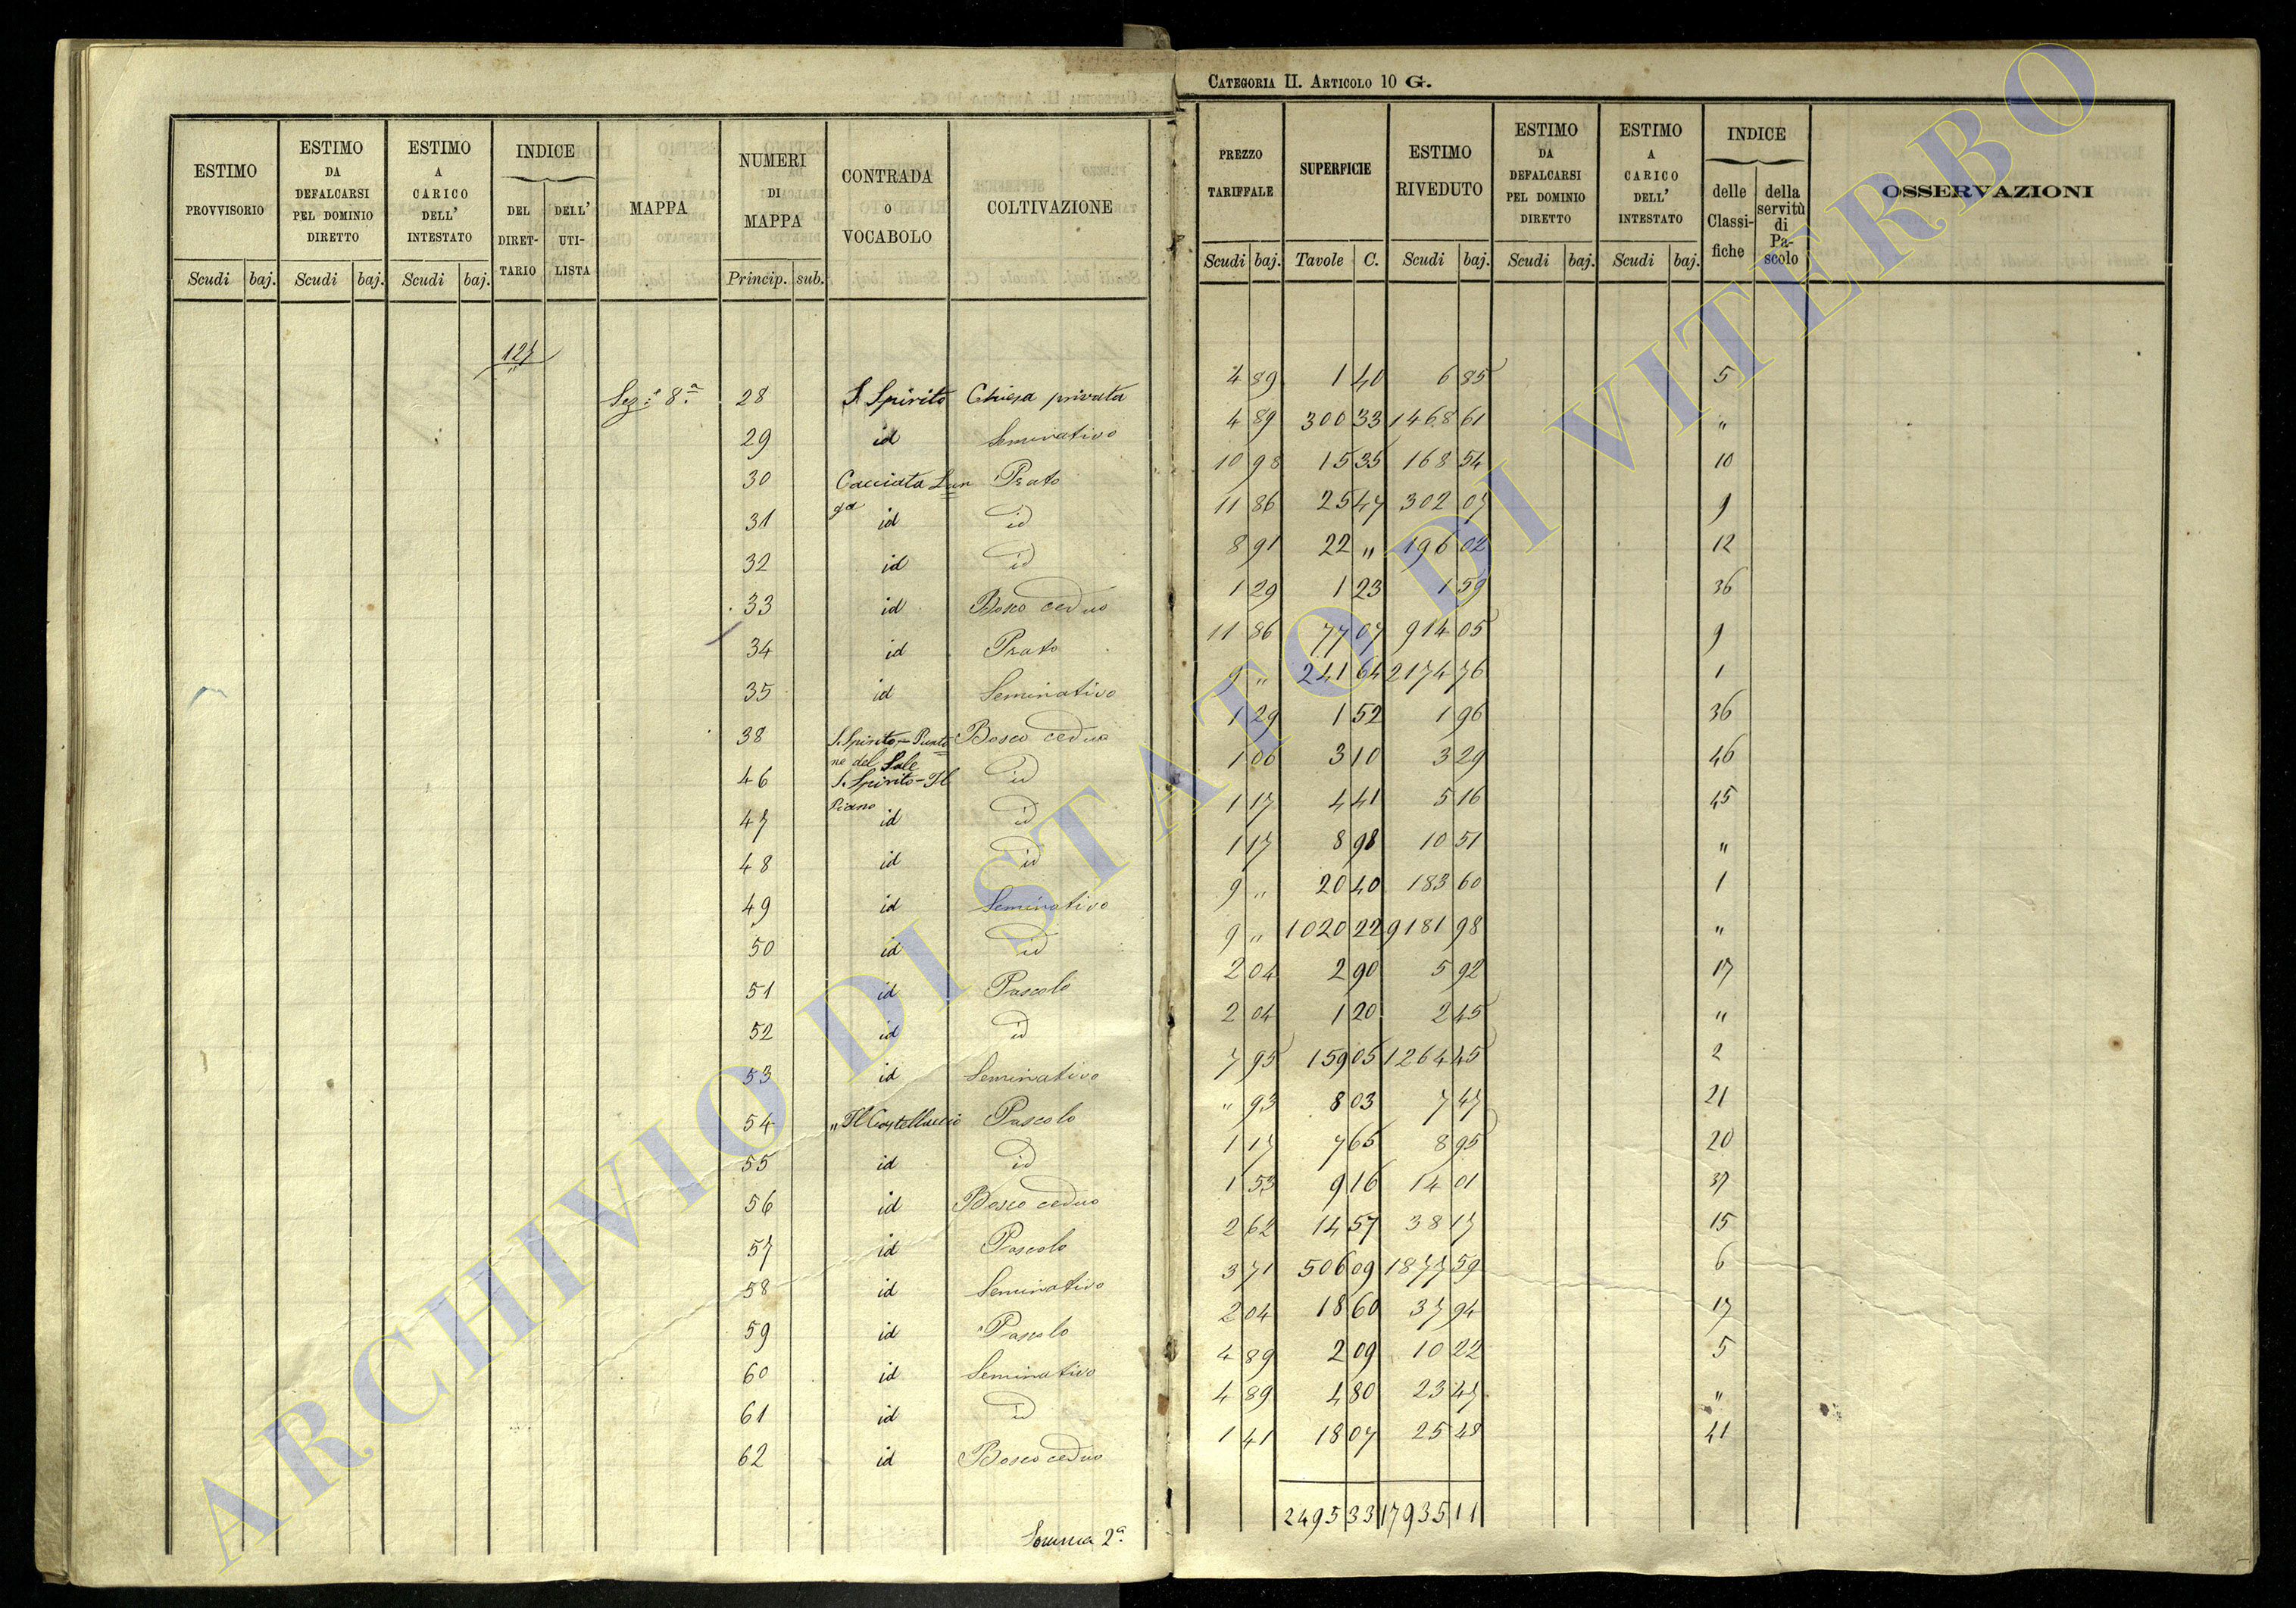 CATEGORIA II. ARTICOLO 10 G.
ESTIMO PROVVISORIO | ESTIMO DA DEFALCARSI PEL DOMINIO DIRETTO | ESTIMO A CARICO DELL' INTESTATO | INDICE DEL DIRETTARIO | DELL' UTILISTA | MAPPA | NUMERI DI MAPPA | CONTRADA O VOCABOLO | COLTIVAZIONE | PREZZO TARIFFALE | SUPERFICIE | ESTIMO RIVEDUTO | ESTIMO DA DEFALCARSI PEL DOMINIO DIRETTO | ESTIMO A CARICO DELL' INTESTATO | INDICE delle Classifiche | della servitù di Pascolo | OSSERVAZIONI
Scudi baj. | Scudi baj. | Scudi baj. | Princip. sub. | Scudi baj. | Tavole C. | Scudi baj. | Scudi baj. | Scudi baj.
127
Sez: 8ª 28 S. Spirito Chiesa privata 4 89 1 40 6 85 5
29 id Seminativo 4 89 300 33 1468 61 "
30 Cacciata Lunga Prato 10 98 15 35 168 54 10
31 id id 11 86 25 47 302 07 9
32 id id 8 91 22 " 196 02 12
33 id Bosco ceduo 1 29 1 23 1 59 36
34 id Prato 11 86 77 07 914 05 9
35 id Seminativo 9 " 241 64 2174 76 1
38 S. Spirito - Puntone del Sole Bosco ceduo 1 29 1 52 1 96 36
46 S. Spirito - Il Piano id 1 06 3 10 3 29 46
47 id id 1 17 4 41 5 16 45
48 id id 1 17 8 98 10 51 "
49 id Seminativo 9 " 20 40 183 60 1
50 id id 9 " 1020 22 9181 98 "
51 id Pascolo 2 04 2 90 5 92 17
52 id id 2 04 1 20 2 45 "
53 id Seminativo 7 95 159 05 1264 45 2
54 " Il Castelluccio Pascolo " 93 8 03 7 47 21
55 id id 1 17 7 65 8 95 20
56 id Bosco ceduo 1 53 9 16 14 01 37
57 id Pascolo 2 62 14 57 38 17 15
58 id Seminativo 3 71 506 09 1877 59 6
59 id Pascolo 2 04 18 60 37 94 17
60 id Seminativo 4 89 2 09 10 22 5
61 id id 4 89 4 80 23 47 "
62 id Bosco ceduo 1 41 18 07 25 48 41
Somma 2ª 2495 33 17935 11
ARCHIVIO DI STATO DI VITERBO